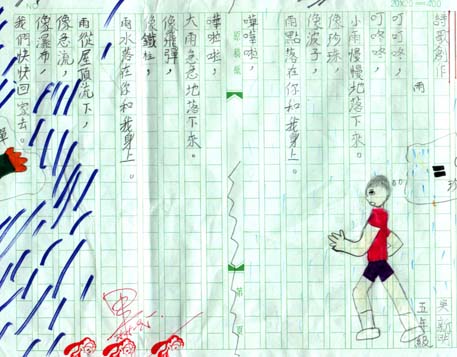 20×20=400
詩歌創作
雨
五年級
叮叮咚，
叮咚咚，
小雨慢慢地落下來。
像珍珠，
像波子，
雨點落在你和我身上。
嘩嘩啦，
嘩啦啦，
大雨急急地落下來。
像飛彈，
像鐵柱，
雨水落在你和我身上。
雨從屋頂流下，
像急流，
像瀑布，
我們快快回家去。
原稿紙
第
頁
=
珍